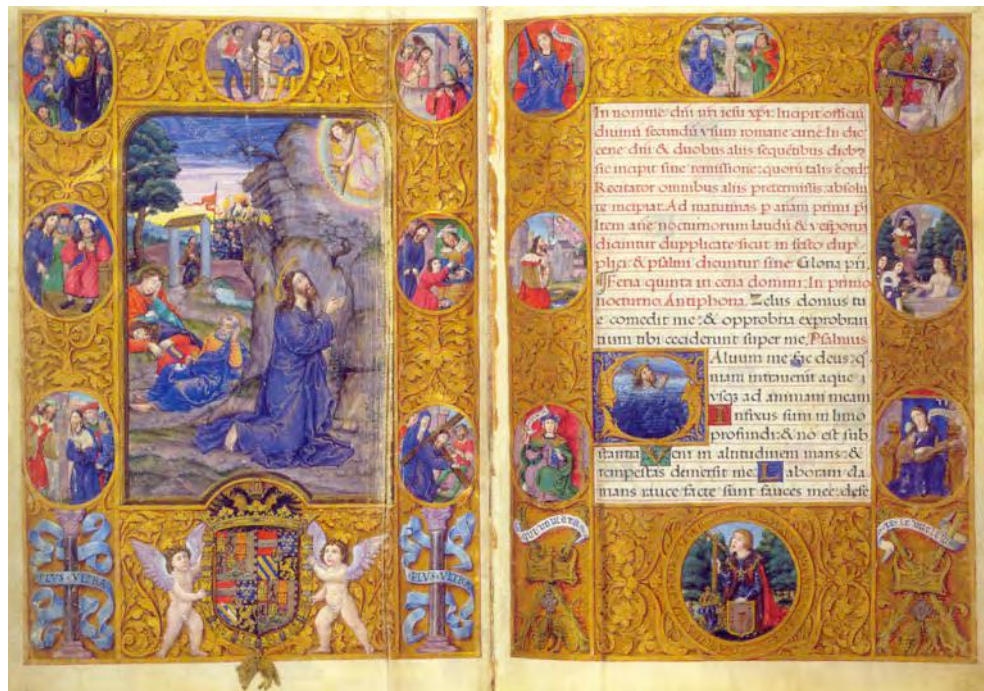 PLVS VLTRA
PLVS VLTRA
In nomine dñi nr̃i iesu xpi: Incipit officiũ
diuinũ secundũ vsum romane curie. In die
cene dñi & duobus aliis sequẽtibus dieb9
sic incipit sine remissione: quorũ talis ẽ ord:
Recitator omnibus aliis pretermissis: absolu
te incipiat: Ad matutinas primi
Item añe nocturnorum laudũ & vesporũ
dicuntur dupplicate sicut in festo dup
plici: & psalmi dicuntur sine Gloria pri.
Feria quinta in cena domini: In primo
nocturno. Antiphona. Zelus domus tu
e comedit me: & opprobria exprobran
tium tibi ceciderunt super me. Psalmus
Aluum me fac deus: q̃
niam intrauerũt aque
vsq3 ad animam meam
Infixus sum in limo
profundi: & nõ est sub
stantia Veni in altitudinem maris: &
tempestas demersit me. Laboraui cla
mans rauce facte sunt fauces mee: defe